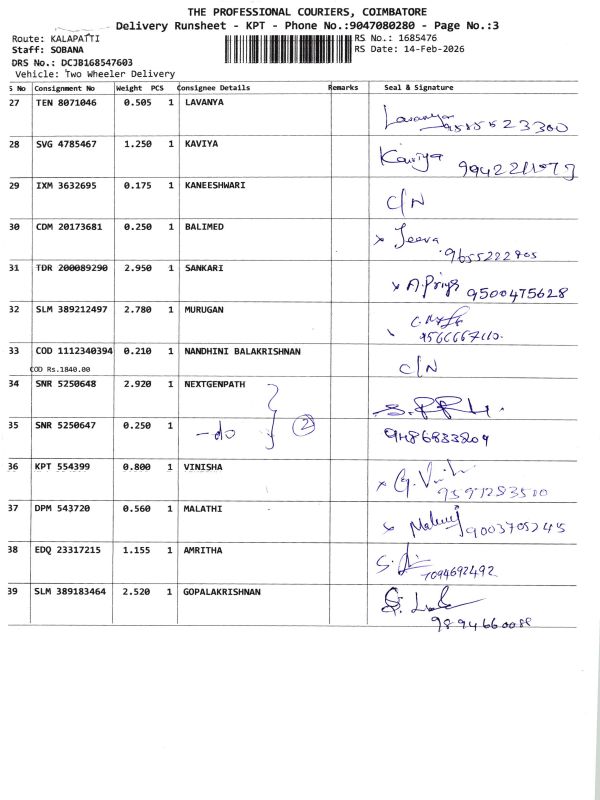 THE PROFESSIONAL COURIERS, COIMBATORE
Delivery Runsheet - KPT - Phone No.:9047080280 - Page No.:3
Route: KALAPATTI
RS No.: 1685476
Staff: SOBANA
RS Date: 14-Feb-2026
DRS No.: DCJB168547603
Vehicle: Two Wheeler Delivery
S No Consignment No Weight PCS Consignee Details Remarks Seal & Signature
27 TEN 8071046 0.505 1 LAVANYA Lavanya
9585523300
28 SVG 4785467 1.250 1 KAVIYA Kaviya
29 IXM 3632695 0.175 1 KANEESHWARI C/N
30 CDM 20173681 0.250 1 BALIMED x Jeeva
31 TDR 200089290 2.950 1 SANKARI x A.Priya 9500475628
32 SLM 389212497 2.780 1 MURUGAN
33 COD 1112340394 0.210 1 NANDHINI BALAKRISHNAN C/N
COD Rs.1840.00
34 SNR 5250648 2.920 1 NEXTGENPATH
35 SNR 5250647 0.250 1 -do 2 9486833209
36 KPT 554399 0.800 1 VINISHA x
37 DPM 543720 0.560 1 MALATHI x 9003705245
38 EDQ 23317215 1.155 1 AMRITHA
7094692492
39 SLM 389183464 2.520 1 GOPALAKRISHNAN
9894660088